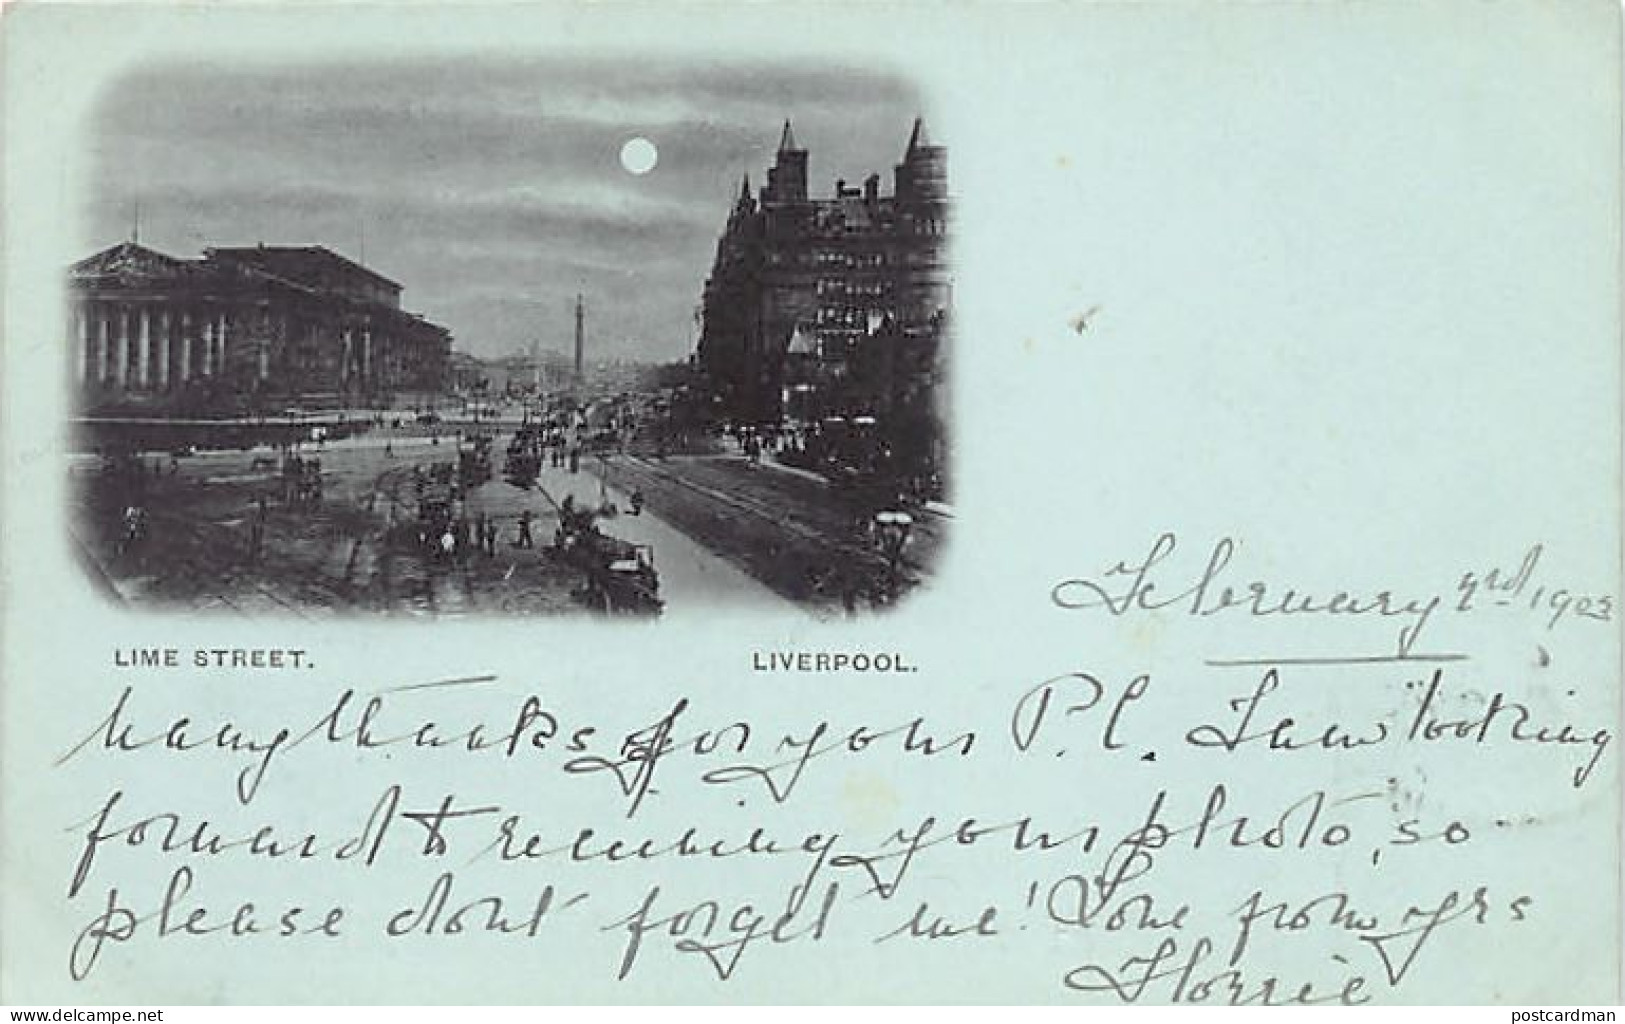 LIME STREET.
LIVERPOOL.
February 2nd, 1903
Many thanks for your P.C. I am looking
forward to receiving your photo, so
please dont forget me! Love from yrs
Florrie
postcardman
www.delcampe.net